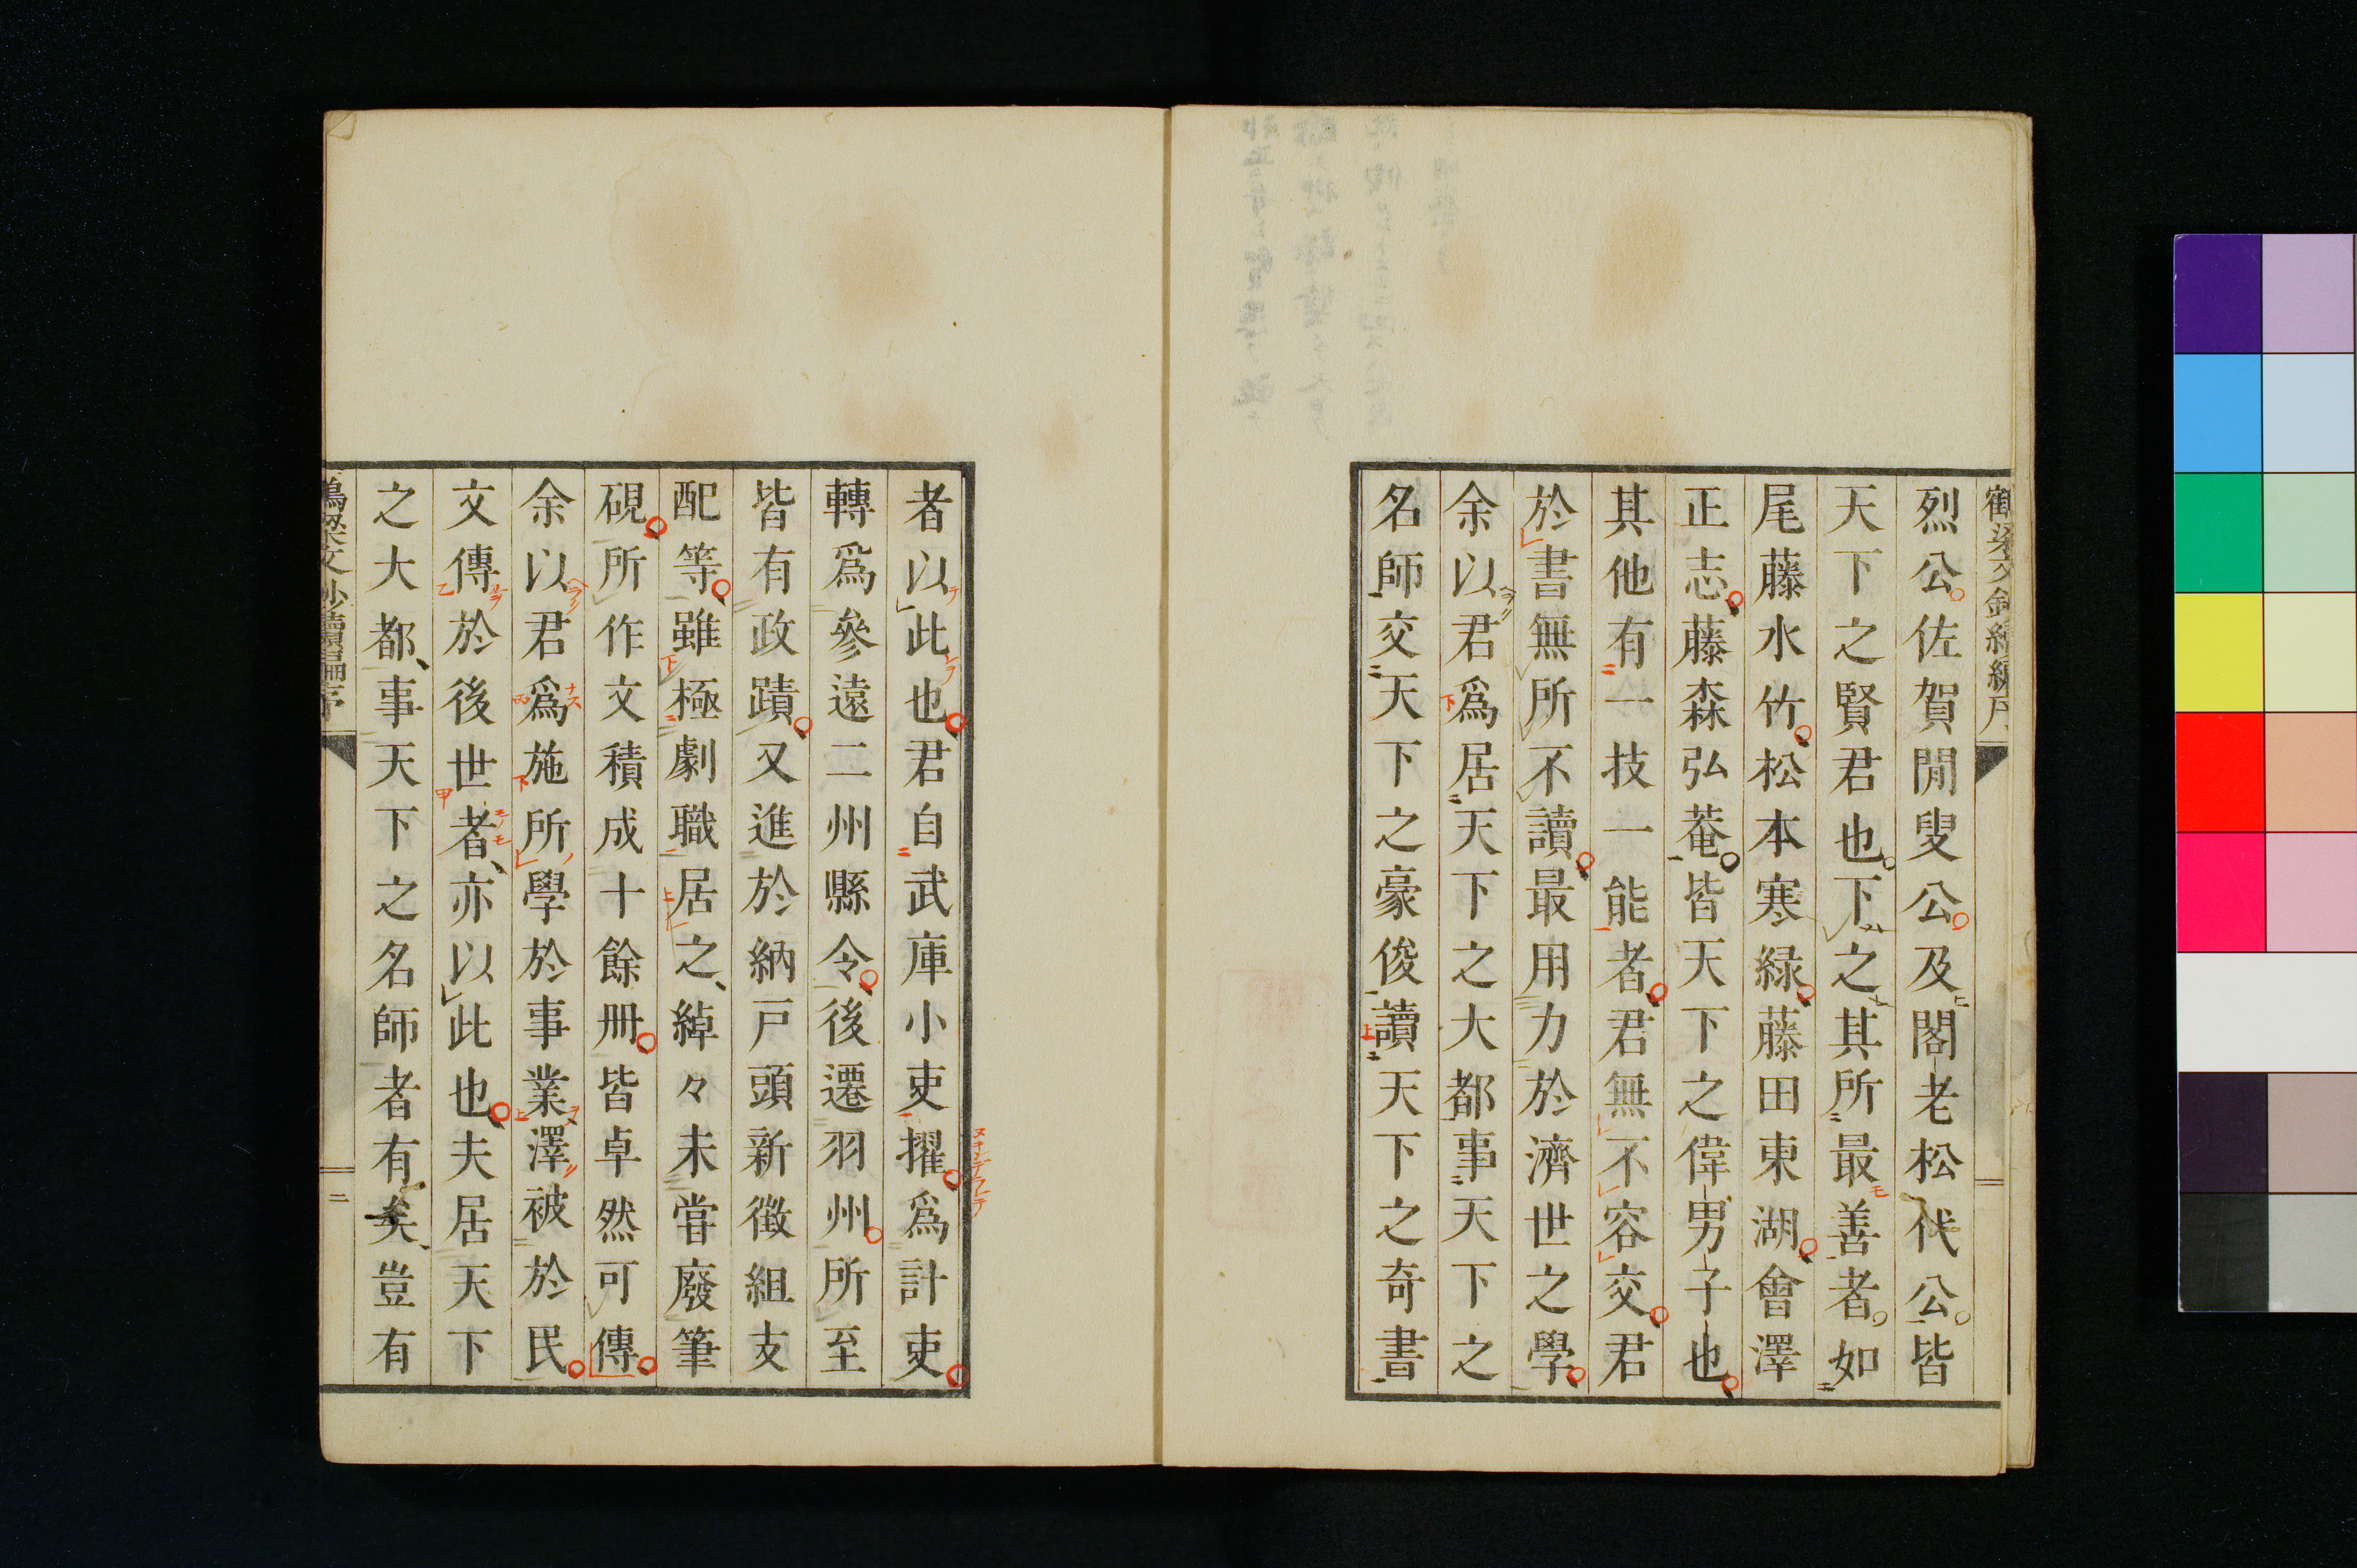 烈公佐賀閒叟公及閣老松代公皆
天下之賢君也下之其所最善者如
尾藤水竹松本寒緑藤田東湖會澤
正志藤森弘菴皆天下之偉男子也
其他有一技一能者君無不容交君
於書無所不讀最用力於濟世之學
余以君爲居天下之大都事天下之
名師交天下之豪俊讀天下之奇書
者以此也君自武庫小吏擢爲計吏
轉爲參遠二州縣令後遷羽州所至
皆有政蹟又進於納戸頭新徴組支
配等雖極劇職居之綽々未嘗廢筆
硯所作文積成十餘册皆卓然可傳
余以君爲施所學於事業澤被於民
文傳於後世者亦以此也夫居天下
之大都事天下之名師者有矣豈有
二